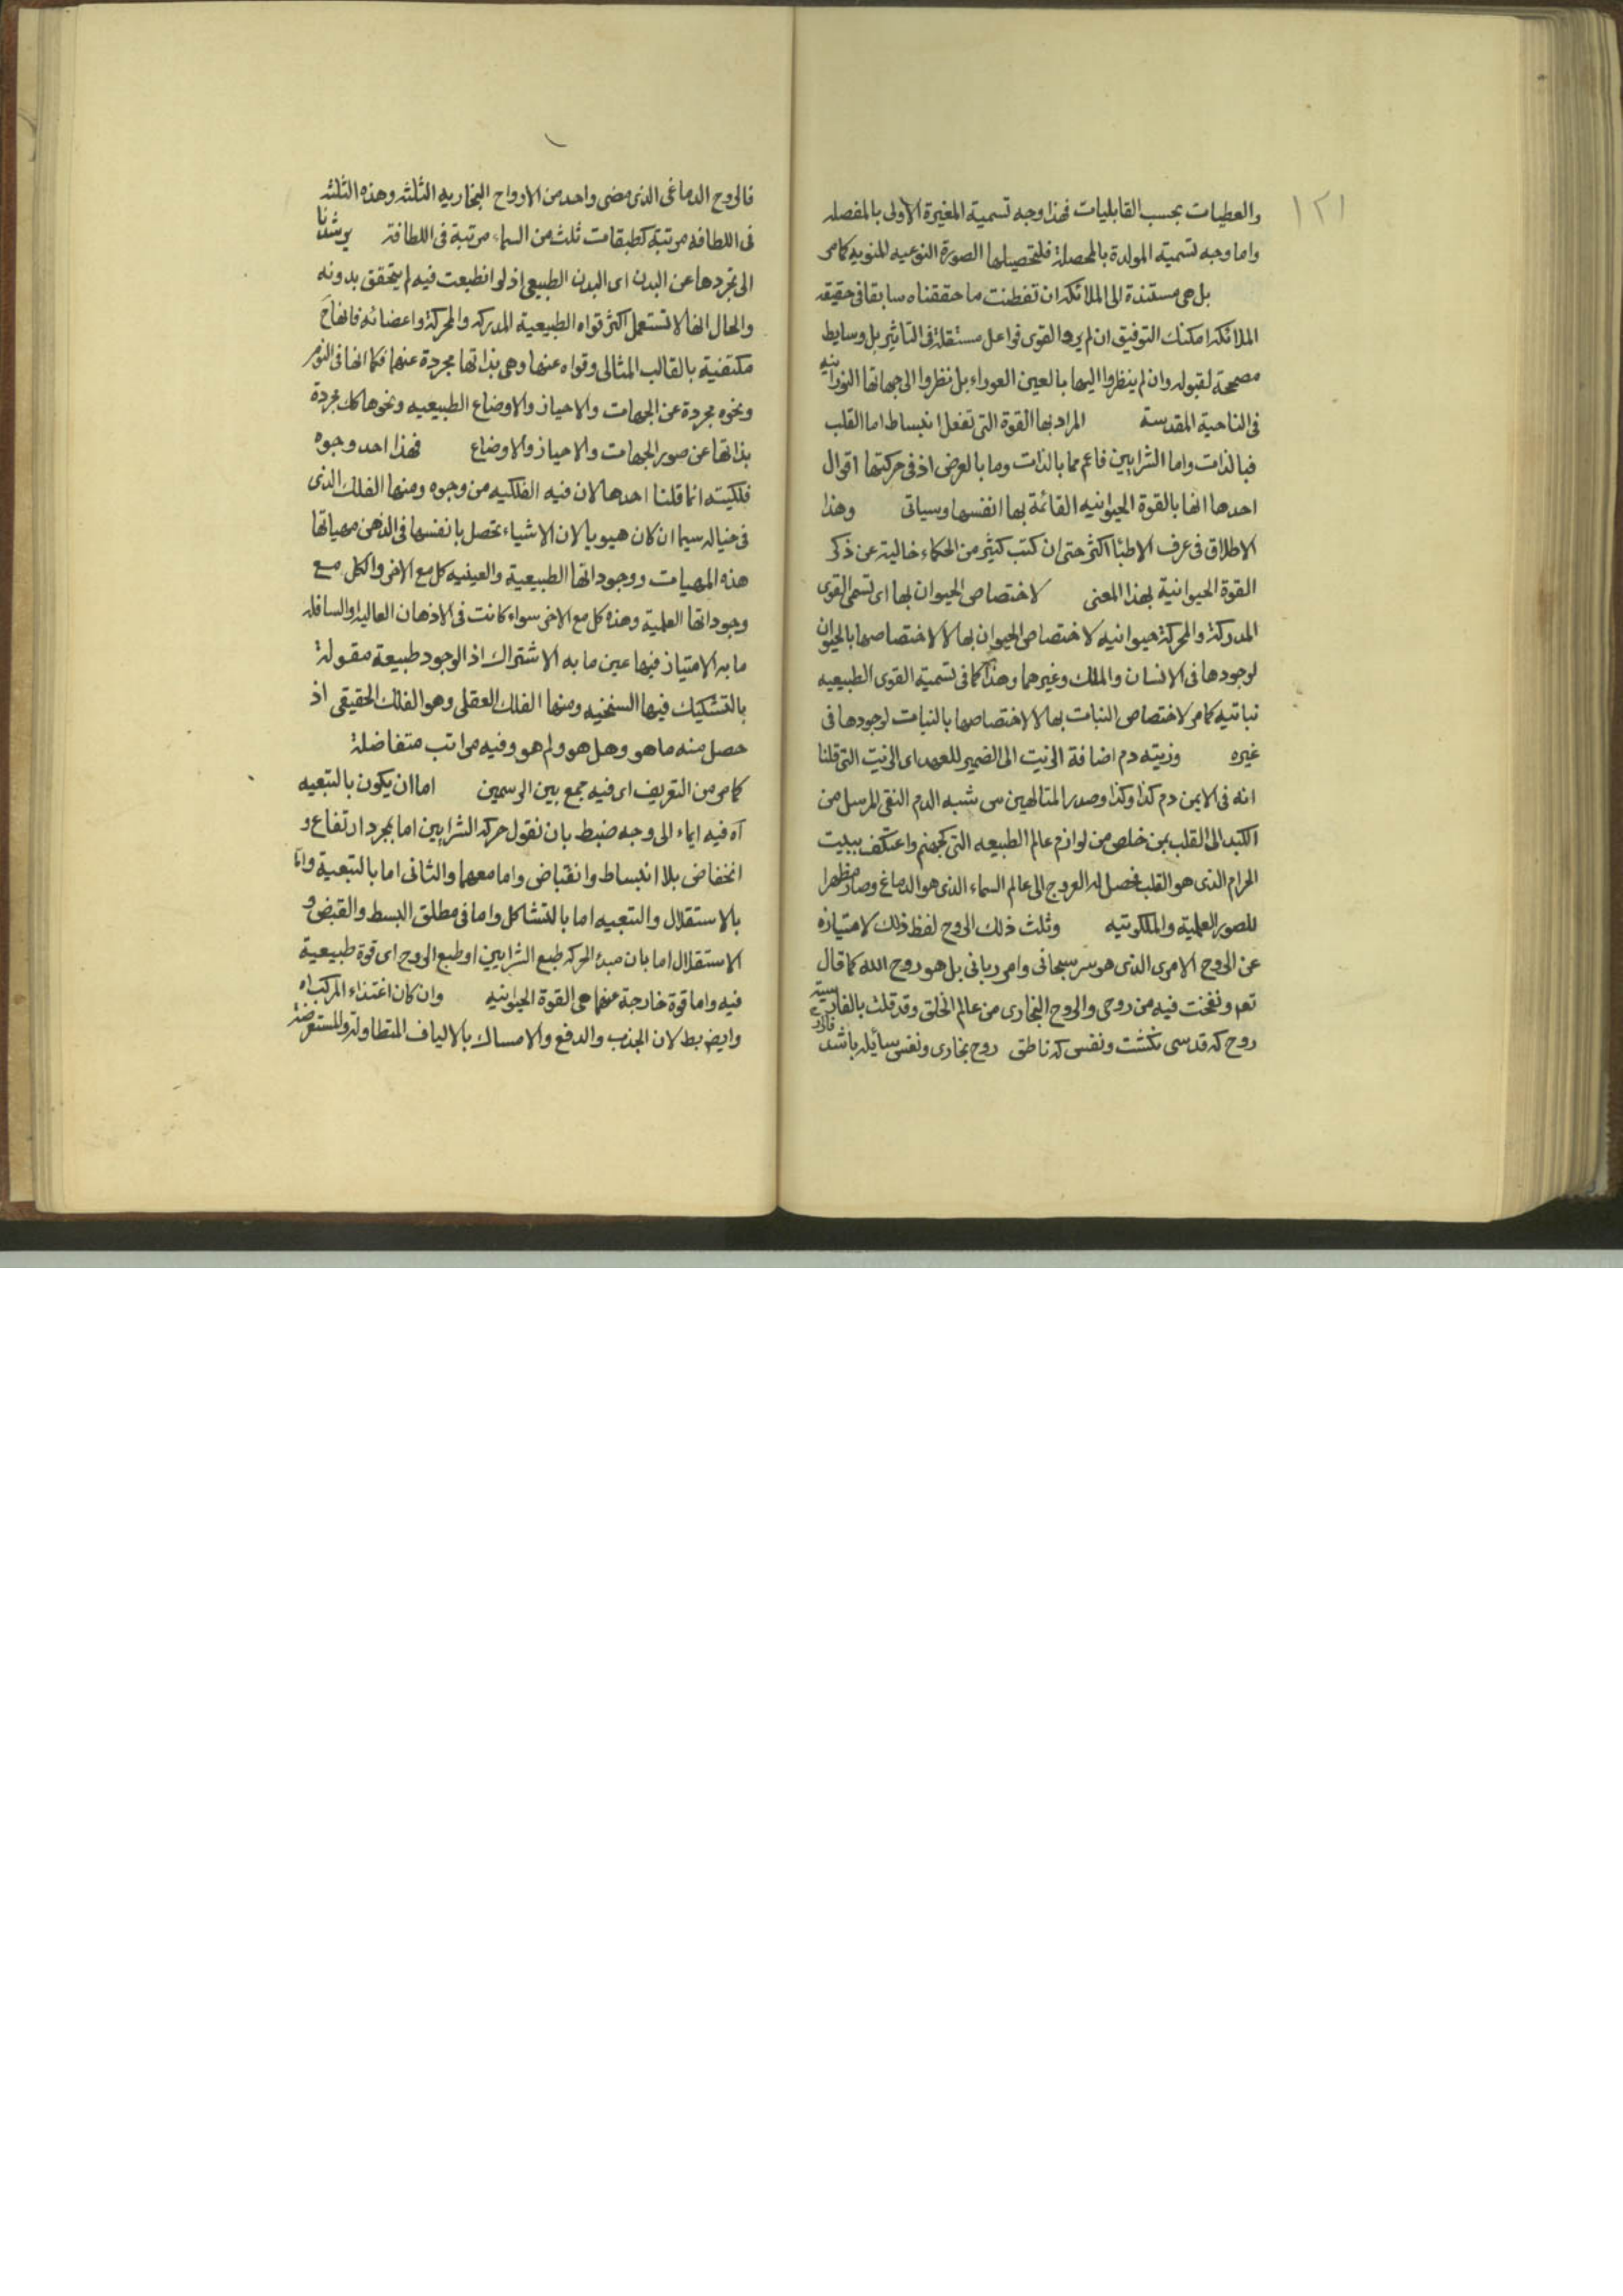 ١٢١
والعطيات بحسب القابليات فهذا وجه تسمية المغيرة الاولى بالمفصله
واما وجه تسمية المولدة بالمحصلة فلتحصيلها الصورة النوعيه المنويه كما مر
بل هى مستندة الى الملائكه ان تفطنت ما حققناه سابقا فى حقيقه
الملائكه امكنك التوفيق ان لم يروا القوى فواعل مستقلة فى التاثير بل وسايط
مصححة لقبوله وان لم ينظروا اليها بالعين العوراء بل نظروا الى جهاتها النورانيه
فى الناحية المقدسة المراد بها القوة التى تفعل انبساط اما القلب
فبالذات واما الشرايين فاعم مما بالذات وما بالعرض اذ فى حركتها اقوال
احدها انها بالقوة الحيوانيه القائمة بها انفسها وسياتى وهذا
الاطلاق فى عرف الاطبا اكثر حتى ان كتب كثير من الحكماء خالية عن ذكر
القوة الحيوانية بهذا المعنى لاختصاص الحيوان بها اى تسمى القوى
المدركة والمحركة حيوانيه لاختصاص الحيوان بها لا لاختصاصها بالحيوان
لوجودها فى الانسان والملك وغيرهما وهذا كما فى تسمية القوى الطبيعيه
نباتيه كما مر لاختصاص النبات بها لا لاختصاصها بالنبات لوجودها فى
غيره وزيته دم اضافة الزيت الى الضمير للعهد اى الزيت التى قلنا
انه فى الايمن دم كذا وكذا وصدر المتالهين س شبه الدم النقى المرسل من
الكبد الى القلب بمن خلص من لوازم عالم الطبيعه التى كجهنم واعتكف ببيت
الحرام الذى هو القلب فحصل له العروج الى عالم السماء الذى هو الدماغ وصار مظهرا
للصور العلمية والملكوتيه وثلث ذلك الروح لفظ ذلك لامتيازه
عن الروح الامرى الذى هو سر سبحانى وامر ربانى بل هو روح الله كما قال
تعم ونفخت فيه من روحى والروح البخارى من عالم الخلق وقد قلت بالفارسية
روح كه قدسى نكشت ونفس كه ناطق روح بخارى ونفس سائله باشد
فالروح الدماغى الذى مضى واحد من الارواح البخاريه الثلثه وهذه الثلثه
فى اللطافه مرتبة كطبقات ثلث من السماء مرتبة فى اللطافة يرشدنا
الى تجردها عن البدن اى البدن الطبيعى اذ لو انطبعت فيه لم يتحقق بدونه
والحال انها لا تستعمل اكثر قواه الطبيعية المدركه والمحركة واعضائه فانها ح
مكتفية بالقالب المثالى وقواه عنها وهى بذاتها مجردة عنهما فكما انها فى النوم
ونحوه مجردة عن الجهات والاحياز والاوضاع الطبيعيه ونحوها كك مجردة
بذاتها عن صور الجهات والاحياز والاوضاع فهذا احد وجوه
فلكيته انما قلنا احدها لان فيه الفلكيه من وجوه ومنها الفلك الذى
فى خياله سيما ان كان هيويا لان الاشياء تحصل بانفسها فى الذهن مهياتها
هذه المهيات ووجوداتها الطبيعية والعينيه كل مع الاخر والكل مع
وجوداتها العلمية وهذه كل مع الاخر سواء كانت فى الاذهان العاليه او السافله
ما به الامتياز فيها عين ما به الاشتراك اذ الوجود طبيعة مقولة
بالتشكيك فيها السنخيه ومنها الفلك العقلى وهو الفلك الحقيقى اذ
حصل منه ما هو وهل هو ولم هو وفيه مراتب متفاضلة
كما مر من التعريف اى فيه جمع بين الرسمين اما ان يكون بالتبعيه
آه فيه ايماء الى وجه ضبط بان نقول حركه الشرايين اما بمجرد ارتفاع و
انخفاض بلا انبساط وانقباض واما معهما والثانى اما بالتبعية واما
بالاستقلال والتبعيه اما بالتشاكل واما فى مطلق البسط والقبض و
الاستقلال اما بان مبدء الحركه طبع الشرايين او طبع الروح اى قوة طبيعية
فيه واما قوة خارجة عنهما هى القوة الحيوانيه وان كان اغتذاء المركب اه
وايض بط لان الجذب والدفع والامساك بالالياف المتطاولة والمستعرضة